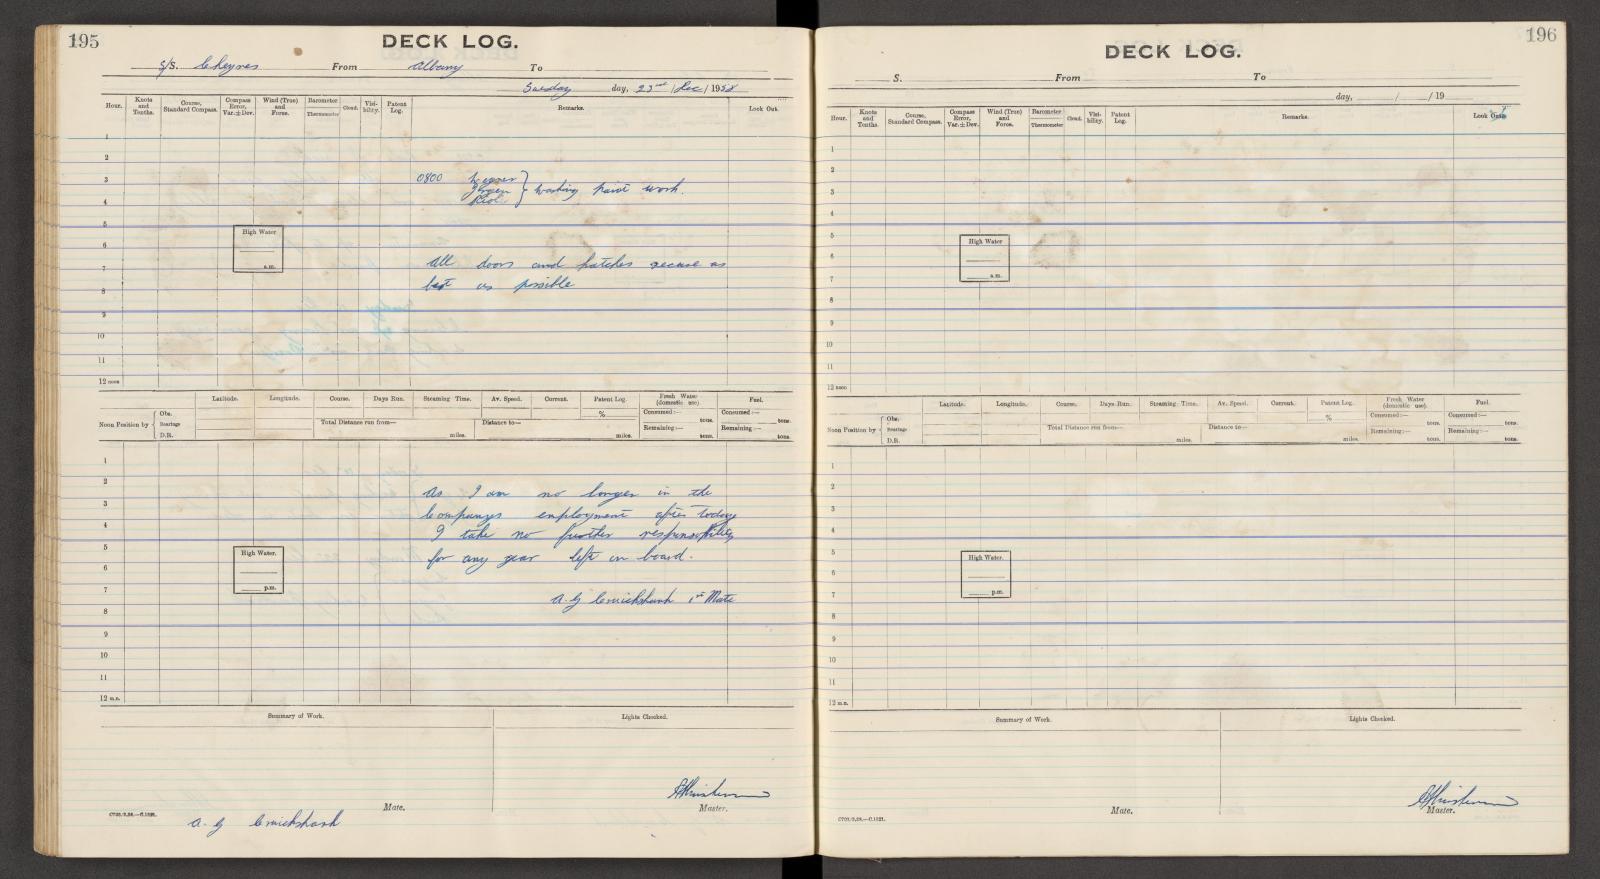 195
DECK LOG.
S/S. Cheynes From Albany To
Tuesday day, 23rd / Dec / 1958
Hour. Knots and Tenths. Course, Standard Compass. Compass Error, Var.±Dev. Wind (True) and Force. Barometer Thermometer Cloud. Visibility. Patent Log. Remarks. Look Out.
1
2
3 0800
4 working paint work.
5
High Water
a.m.
7 All doors and hatches secure as
8 best as possible
9
10
11
12 noon
Latitude. Longitude. Course. Days Run. Steaming Time. Av. Speed. Current. Patent Log. Fresh Water (domestic use). Fuel.
Noon Position by Obs. Bearings D.R.
Total Distance run from— miles. Distance to— miles. %
Consumed:— tons. Remaining:— tons. Consumed:— tons. Remaining:— tons.
1
2 As I am no longer in the
3 Companys employment after today
4 I take no further responsibility
5 for any gear left on board.
High Water.
p.m.
6
7 A. G Cruickshank 1st Mate
8
9
10
11
12 m.n.
Summary of Work. Lights Checked.
Mate. Master.
C7721/2,28.—C.1221.
A. G Cruickshank
196
DECK LOG.
S. From To
day, / / 19
Hour. Knots and Tenths. Course, Standard Compass. Compass Error, Var.±Dev. Wind (True) and Force. Barometer Thermometer Cloud. Visibility. Patent Log. Remarks. Look Out.
1
2
3
4
5
High Water
a.m.
6
7
8
9
10
11
12 noon
Latitude. Longitude. Course. Days Run. Steaming Time. Av. Speed. Current. Patent Log. Fresh Water (domestic use). Fuel.
Noon Position by Obs. Bearings D.R.
Total Distance run from— miles. Distance to— miles. %
Consumed:— tons. Remaining:— tons. Consumed:— tons. Remaining:— tons.
1
2
3
4
5
High Water.
p.m.
6
7
8
9
10
11
12 m.n.
Summary of Work. Lights Checked.
Mate. Master.